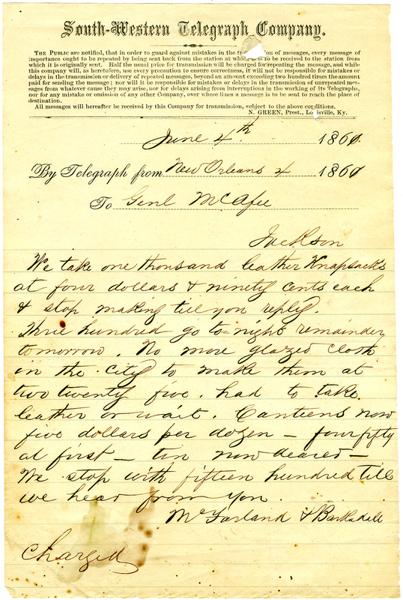 South-Western Telegraph Company.
THE PUBLIC are notified, that in order to guard against mistakes in the of messages, every message of
importance ought to be repeated by being sent back from the station at which it is to be received to the station from
which it is originally sent. Half the usual price for transmission will be charged for repeating the message, and while
this company will, as heretofore, use every precaution to ensure correctness, it will not be responsible for mistakes or
delays in the transmission or delivery of repeated messages, beyond an amount exceeding two hundred times the amount
paid for sending the message; nor will it be responsible for mistakes or delays in the transmission of unrepeated mes-
sages from whatever cause they may arise, nor for delays arising from interruptions in the working of its Telegraphs,
nor for any mistake or omission of any other Company, over whose lines a message is to be sent to reach the place of
destination.
All messages will hereafter be received by this Company for transmission, subject to the above conditions.
N. GREEN, Prest., Louisville, Ky.
June 4th 1861.
By Telegraph from New Orleans 4 1861
To Genl McAfee
Jackson
We take one thousand leather Knapsacks
at four dollars & ninety cents each
& stop making till you reply.
Three hundred go to night remainder
tomorrow. No more glazed cloth
in the city to make them at
two twenty five. had to take
leather or wait. Canteens now
five dollars per dozen – four fifty
at first – tin now dearer –
We stop with fifteen hundred till
we hear from you
McFarland & Barksdale
Charged